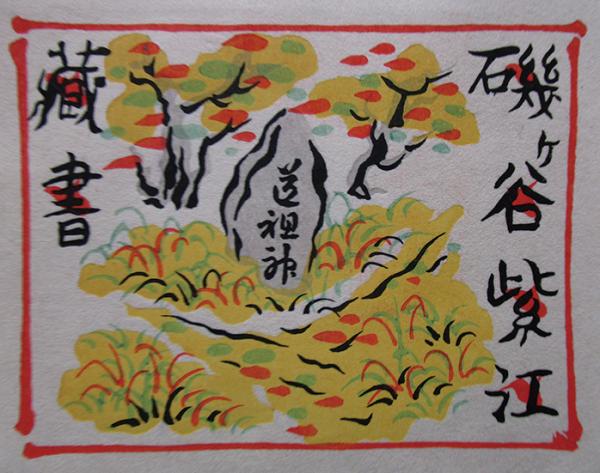 磯ヶ谷紫江
道祖神
藏書